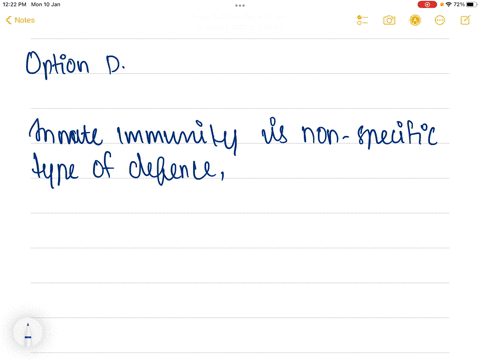 12:22 PM Mon 10 Jan
72%
Notes
Option D.
Innate immunity is non-specific
type of defence,